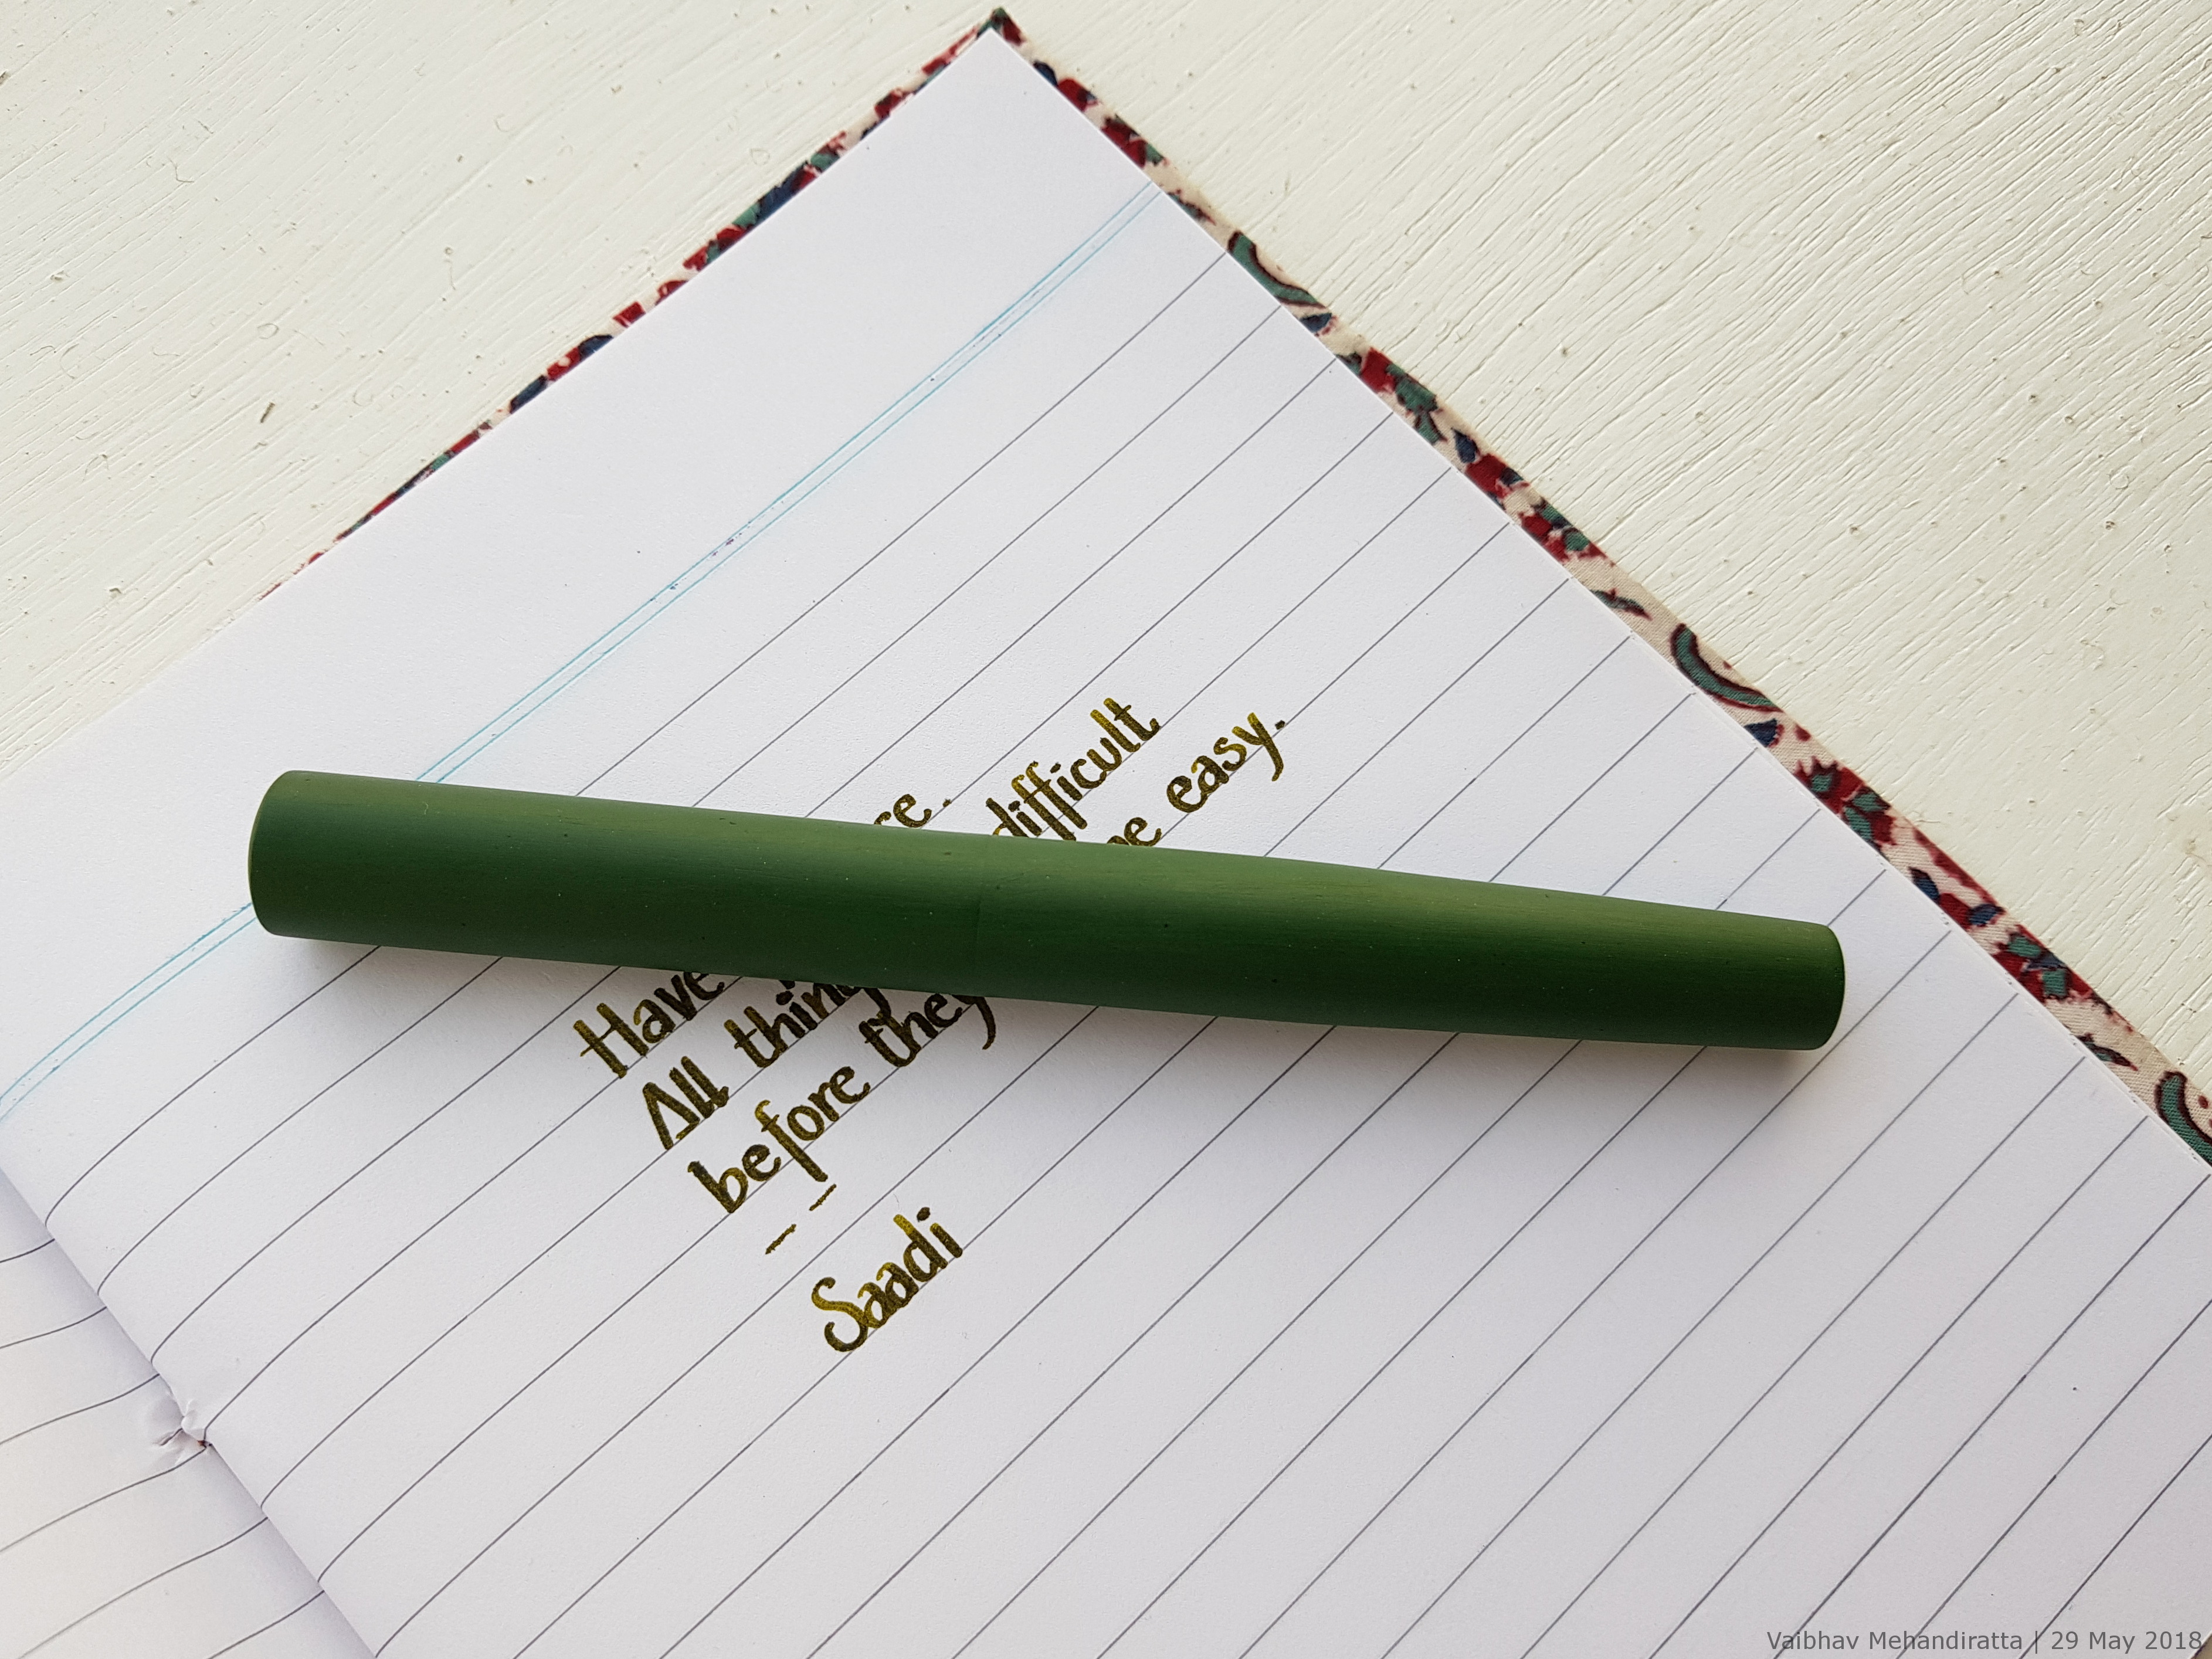 Have
All thing difficult
before they easy.
_ _
Saadi
Vaibhav Mehandiratta | 29 May 2018